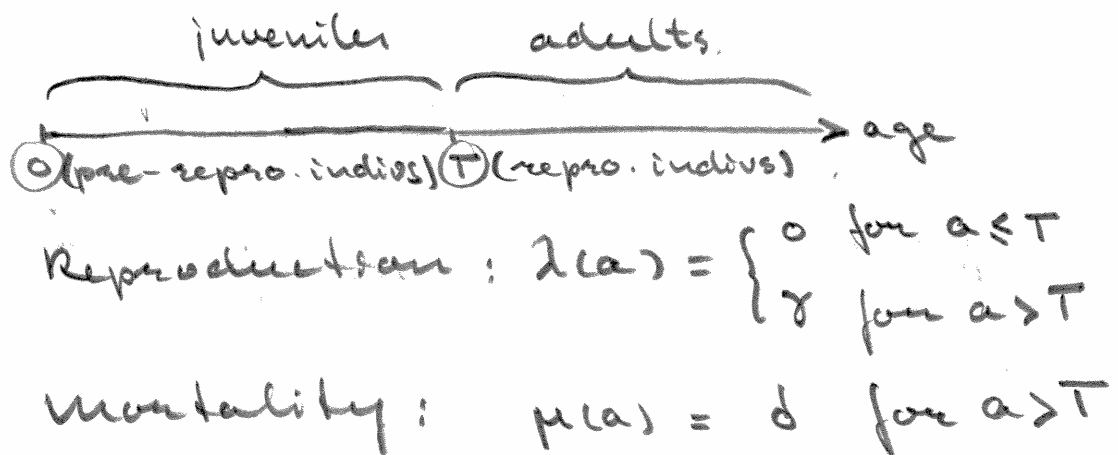 juveniles adults.
> age
0 (pre-repro. indivs) T (repro. indivs)
Reproduction : λ(a) = { 0 for a ≤ T
γ for a > T
Mortality : μ(a) = δ for a > T